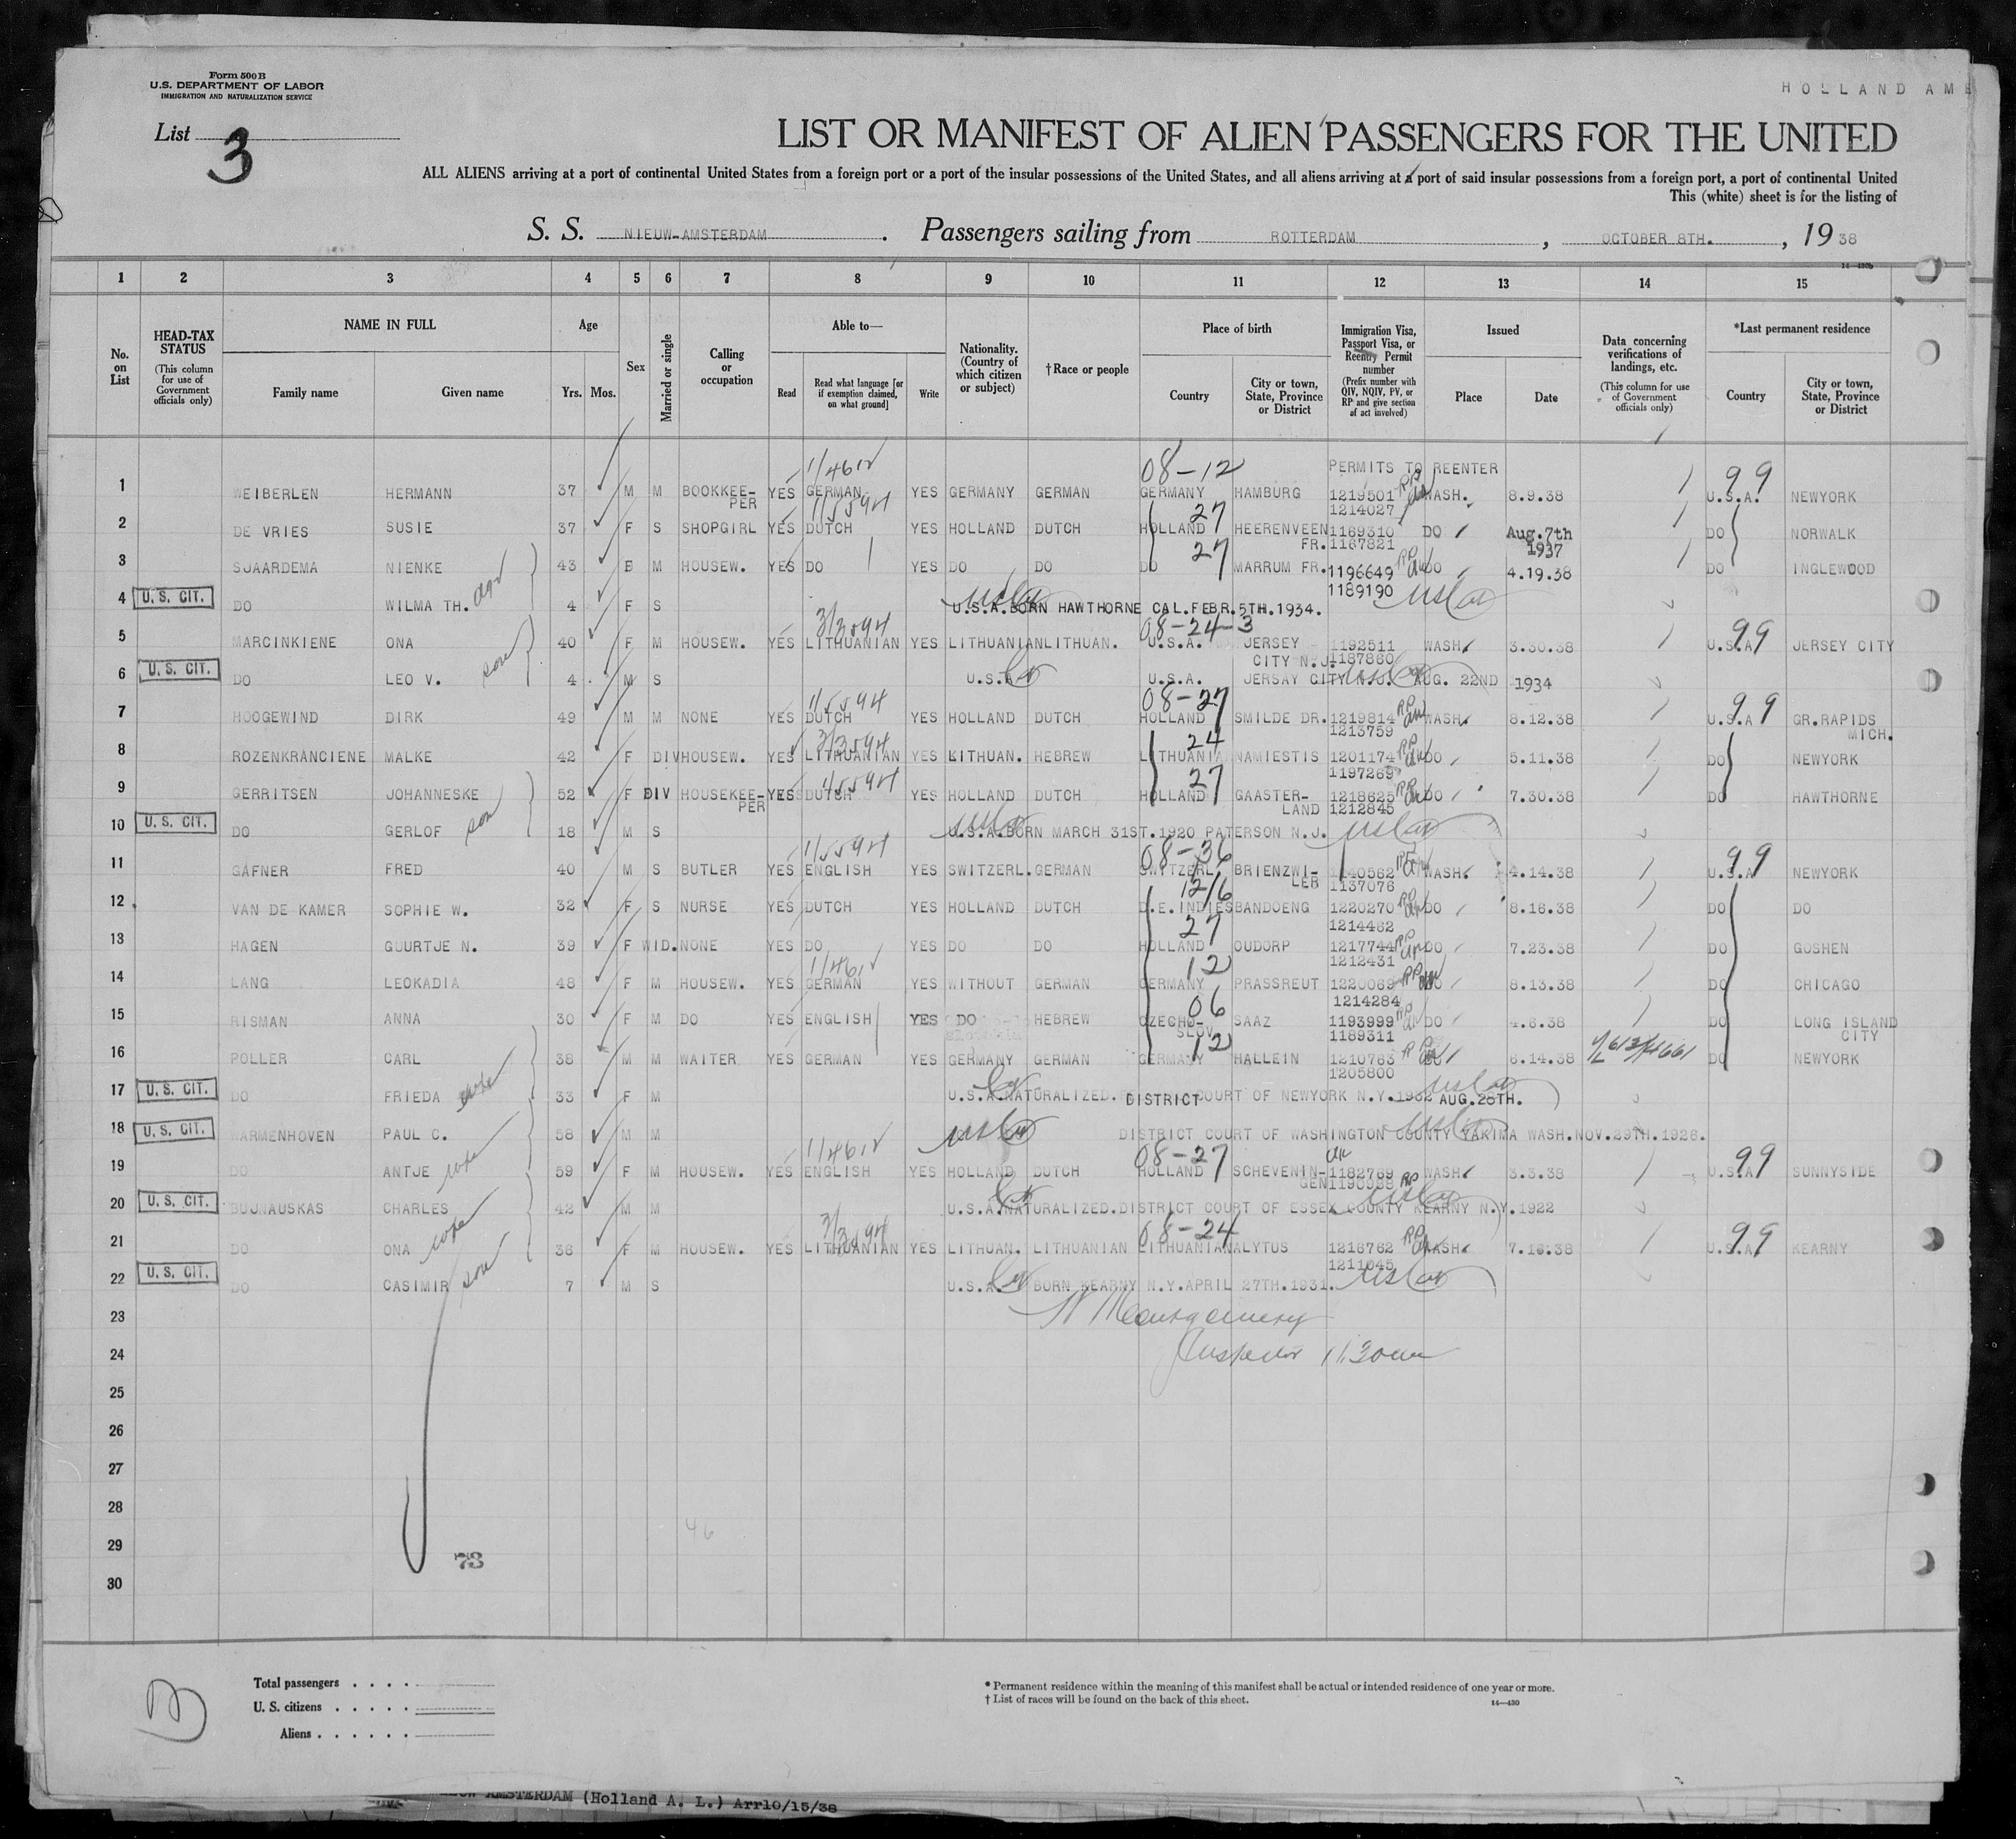 Form 500 B
U.S. DEPARTMENT OF LABOR
IMMIGRATION AND NATURALIZATION SERVICE
HOLLAND AME
List 3
LIST OR MANIFEST OF ALIEN PASSENGERS FOR THE UNITED
ALL ALIENS arriving at a port of continental United States from a foreign port or a port of the insular possessions of the United States, and all aliens arriving at a port of said insular possessions from a foreign port, a port of continental United
This (white) sheet is for the listing of
S. S. NIEUW-AMSTERDAM. Passengers sailing from ROTTERDAM, OCTOBER 8TH., 1938
14—430b
1 2 3 4 5 6 7 8 9 10 11 12 13 14 15
No. on List
HEAD-TAX STATUS (This column for use of Government officials only)
NAME IN FULL
Family name Given name
Age
Yrs. Mos.
Sex
Married or single
Calling or occupation
Able to—
Read Read what language [or if exemption claimed, on what ground] Write
Nationality. (Country of which citizen or subject)
†Race or people
Place of birth
Country City or town, State, Province or District
Immigration Visa, Passport Visa, or Reentry Permit number (Prefix number with QIV, NQIV, PV, or RP and give section of act involved)
Issued
Place Date
Data concerning verifications of landings, etc. (This column for use of Government officials only)
*Last permanent residence
Country City or town, State, Province or District
08-12 PERMITS TO REENTER 99
1 WEIBERLEN HERMANN 37 M M BOOKKEE-PER YES GERMAN YES GERMANY GERMAN GERMANY HAMBURG 1219501 WASH. 8.9.38 U.S.A. NEWYORK
1214027
27
2 DE VRIES SUSIE 37 F S SHOPGIRL YES DUTCH YES HOLLAND DUTCH HOLLAND HEERENVEEN FR. 1169310 DO Aug.7th 1937 DO NORWALK
1167821
27
3 SJAARDEMA NIENKE 43 M HOUSEW. YES DO YES DO DO DO MARRUM FR. 1196649 DO 4.19.38 DO INGLEWOOD
1189190
4 U. S. CIT. DO WILMA TH. 4 F S U.S.A. BORN HAWTHORNE CAL.FEBR.5TH.1934.
08-24-3 99
5 MARCINKIENE ONA 40 F M HOUSEW. YES LITHUANIAN YES LITHUANIAN LITHUAN. U.S.A. JERSEY CITY N.J. 1192511 WASH. 3.30.38 U.S.A JERSEY CITY
1187860
6 U. S. CIT. DO LEO V. son 4 M S U.S.A U.S.A. JERSAY CITY N.J. AUG. 22ND 1934
08-27 99
7 HOOGEWIND DIRK 49 M M NONE YES DUTCH YES HOLLAND DUTCH HOLLAND SMILDE DR. 1219814 WASH. 8.12.38 U.S.A GR.RAPIDS MICH.
1213759
24
8 ROZENKRANCIENE MALKE 42 F DIV HOUSEW. YES LITHUANIAN YES LITHUAN. HEBREW LITHUANIA NAMIESTIS 1201174 DO 5.11.38 DO NEWYORK
1197269
27
9 GERRITSEN JOHANNESKE 52 F DIV HOUSEKEE-PER YES DUTCH YES HOLLAND DUTCH HOLLAND GAASTER-LAND 1218625 DO 7.30.38 DO HAWTHORNE
1212845
10 U. S. CIT. DO GERLOF son 18 M S U.S.A. BORN MARCH 31ST.1920 PATERSON N.J.
08-36 99
11 GAFNER FRED 40 M S BUTLER YES ENGLISH YES SWITZERL. GERMAN SWITZERL. BRIENZWI-LER 1140562 WASH. 4.14.38 U.S.A NEWYORK
1137076
12/6
12 VAN DE KAMER SOPHIE W. 32 F S NURSE YES DUTCH YES HOLLAND DUTCH D.E.INDIES BANDOENG 1220270 DO 8.16.38 DO DO
1214462
27
13 HAGEN GUURTJE N. 39 F WID. NONE YES DO YES DO DO HOLLAND OUDORP 1217744 DO 7.23.38 DO GOSHEN
1212431
12
14 LANG LEOKADIA 48 F M HOUSEW. YES GERMAN YES WITHOUT GERMAN GERMANY PRASSREUT 1220069 DO 8.13.38 DO CHICAGO
1214284
06
15 RISMAN ANNA 30 F M DO YES ENGLISH YES DO HEBREW CZECHO-SLOV. SAAZ 1193999 DO 4.6.38 DO LONG ISLAND CITY
1189311
12
16 POLLER CARL 38 M M WAITER YES GERMAN YES GERMANY GERMAN GERMANY HALLEIN 1210763 DO 6.14.38 DO NEWYORK
1205800
17 U. S. CIT. DO FRIEDA wife 33 F M U.S.A. NATURALIZED. DISTRICT COURT OF NEWYORK N.Y.1932 AUG.26TH.
18 U. S. CIT. WARMENHOVEN PAUL C. 58 M M DISTRICT COURT OF WASHINGTON COUNTY YAKIMA WASH.NOV.29TH.1926.
08-27 99
19 DO ANTJE wife 59 F M HOUSEW. YES ENGLISH YES HOLLAND DUTCH HOLLAND SCHEVENIN-GEN 1182769 WASH 3.3.38 U.S.A SUNNYSIDE
20 U. S. CIT. BUJNAUSKAS CHARLES 42 M M U.S.A. NATURALIZED.DISTRICT COURT OF ESSEX COUNTY KEARNY N.Y.1922
08-24 99
21 DO ONA wife 36 F M HOUSEW. YES LITHUANIAN YES LITHUAN. LITHUANIAN LITHUANIA ALYTUS 1216762 WASH. 7.16.38 U.S.A KEARNY
1211045
22 U. S. CIT. DO CASIMIR son 7 M S U.S.A. BORN KEARNY N.Y.APRIL 27TH.1931.
23 Montgomery
24 Inspector 11.30am
25
26
27
28
46
29
73
30
Total passengers . . . .
U. S. citizens . . . . .
Aliens . . . . . .
* Permanent residence within the meaning of this manifest shall be actual or intended residence of one year or more.
† List of races will be found on the back of this sheet.
14—430
AMSTERDAM (Holland A. L.) Arr10/15/38